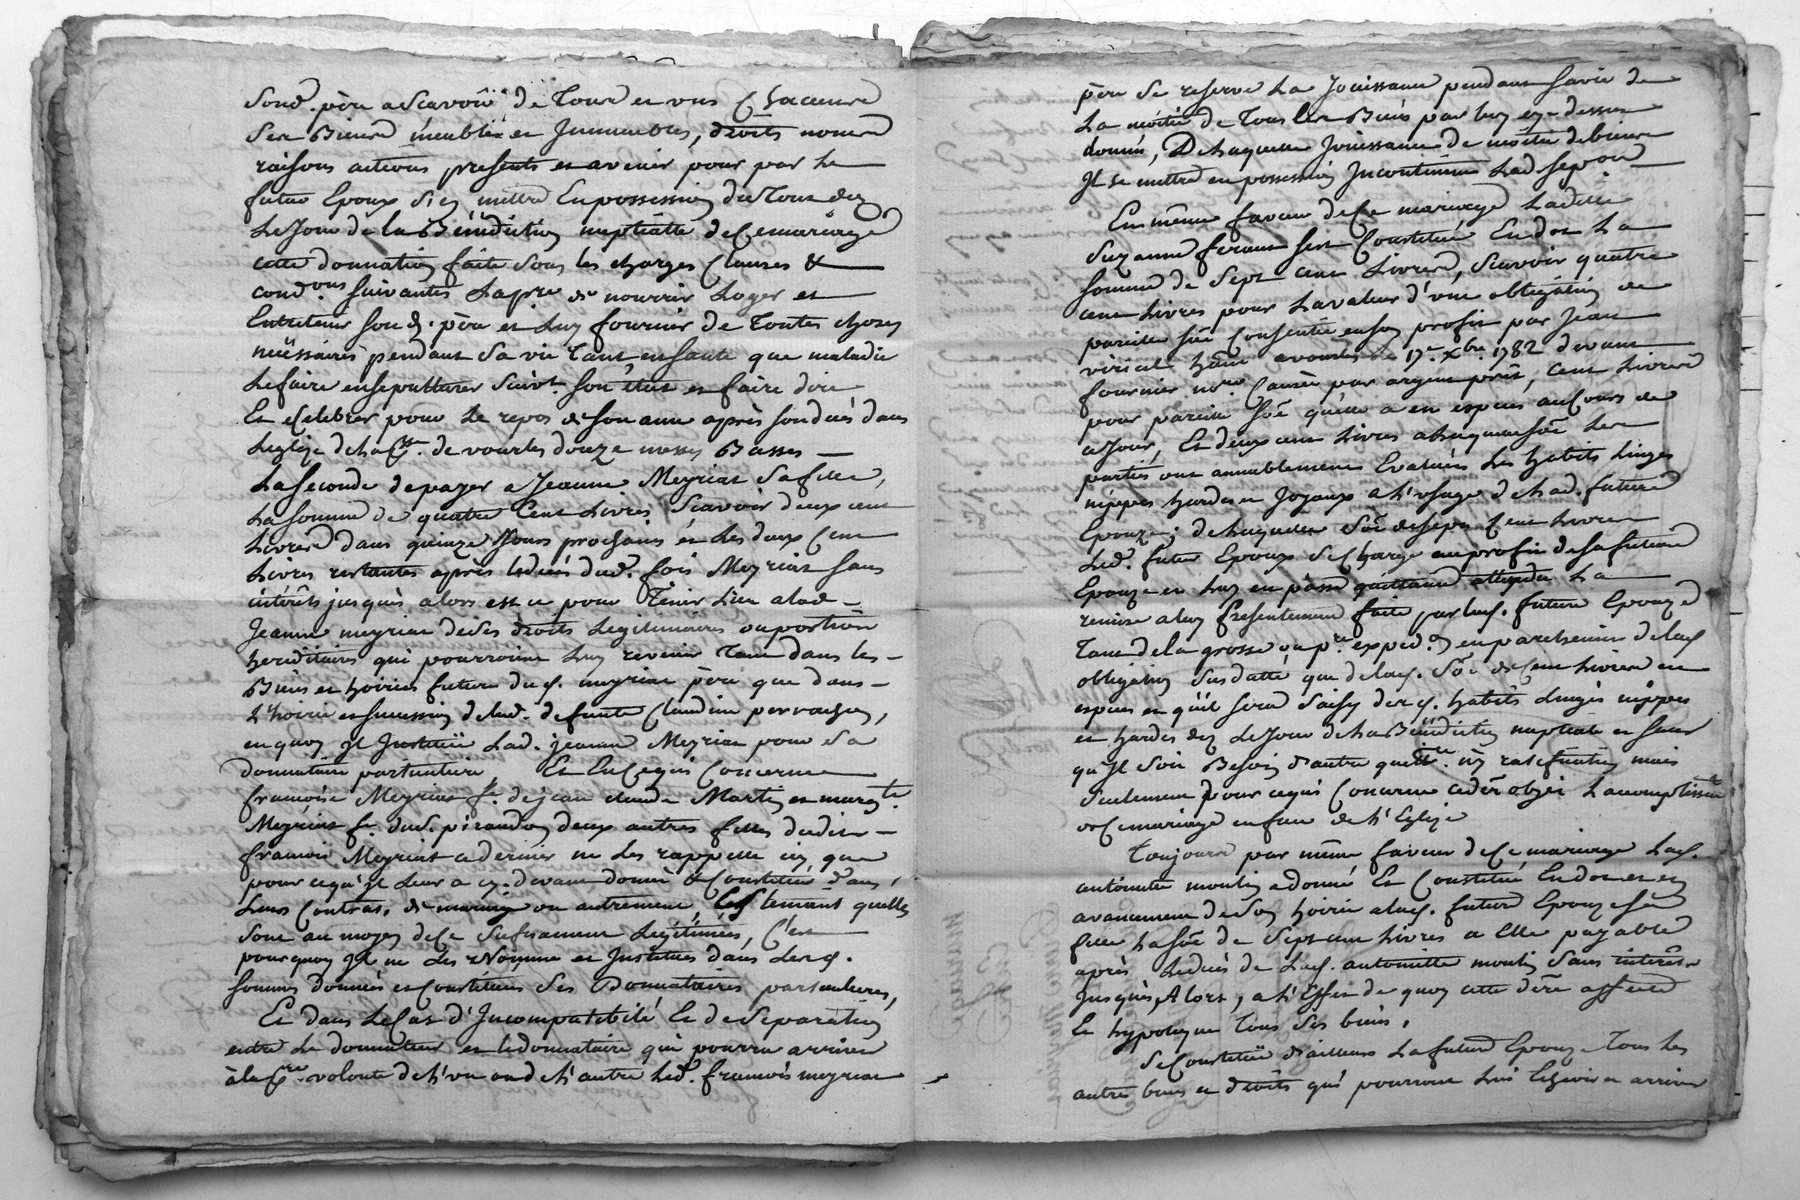 sond. père ascavoir de Tous et uns Chacuns
ses Biens meubles et Immeubles, droits noms
raisons actions presents et avenir pour par le
futur Epoux s'en mettre En possession du Tout dez
Le Jour de la Bénédiction nuptialle de Ce mariage
cette donnation faite Sous les charges Clauses &
cond.ons suivantes Lapre de nourrir Loger et
Entretenir sond. père et Luy fournir de Toutes choses
nécéssaires pendant Sa vie Tant en Santé que maladie
Le faire ensepulturer Suivt. son état et faire dire
Et Celebrer pour le repos de son ame après son décès dans
Leglize de la de vourles douze messes Basses
La Seconde de payer a Jeanne Meyriat Sa fille,
La somme de quatre Cent Livres Scavoir deux cent
Livres dans quinze Jours prochains et Les deux Cent
Livres restantes après le décès dud. fois Meyriat sans
intérêts jusques alors est ce pour Tenir Lieu alad
Jeanne meyriat de Ses droits Legitimaires ou portion
hereditaires qui pourroient Luy revenir Tant dans les
Biens et hoiries future dud. meyriat père que dans
L'hoirie et succession de lad. defunte Claudine
en quoy jl Jnstitue Lad. jeanne Meyriat pour Sa
donnataire particuliere, Et En Ce qui Concerne
francoise Meyriat fe. de jean claude Martin et margte.
Meyriat fe. dud. deux autres filles dudit
francois Meyriat ce dernier ne Les rappelle icy que
pour ce qu'jl Leur a cy devant donné & Constitué dans
Leurs Contrats de mariage ou autrement Les tenant quelles
Sont au moyen de Ce Sufisamment Légitimées, C'est
pourquoy jl ne Les Nomme et Institue dans Lesd.
sommes données et Constituées Ses Donnataires particulieres,
Et dans Le Cas d'Incompatibilité Et de Separation
entre Le donnateur et le donnataire qui pourra arriver
à la volonté de L'un ou de L'autre Led. francois meyriat
père Se reserve La Jouissance pendant sa vie de
La moitié de Tous Les Biens par Luy cy-dessus
donnés, De Laquelle Jouissance de moitié de biens
Jl se mettra en possession Incontinent Lad. separon
En même faveur de Ce mariage Ladite
Suzanne ferand sest Constitué En dot La
somme de Sept cent Livres, Scavoir quatre
cent Livres pour La valeur d'une obligation de
pareille sõe Consentie en son profit par Jean
vivicel Le 17e. Xbre. 1782 devant
fournier nore. Causée par argent prêt, cent Livres
pour pareille sõe quelle a en espèces au Cours de
ce Jour, Et deux cent Livres a Laquelle sõe Les
parties ont amiablement Evaluées Les habits Linges
nippes hardes et Joyaux a L'usage de Lad. future
Epouze; de Laquelle Sõe de Sept Cent Livres
Led. futur Epoux Se Charge au profit de Sa future
Epouze et Luy en passe quittance attendu La
remise a luy Présentement faite par lad. future Epouze
Tant de la grosse ou pre. exped.on en parchemin de lad.
obligation Susdatée que de lad. Sõe de Cent Livres en
espèces et qu'il Sera Saisy desd. habits Linges nippes
et hardes dez Le Jour de La Bénédiction nuptiale et sans
qu'Jl Soit Besoin d'autre quitte. ny ratification mais
Seulement pour ce qui Concerne cedér objet Laccomplissemt
de Ce mariage en face de L'Eglize
Toujours par même faveur de Ce mariage Lad.
antoinette moulin a donné Et Constitué En dot et en
avancement de Son hoirie alad. future Epouze sa
fille La sõe de Sept cent Livres a Elle payable
après Le décès de Lad. antoinette moulin Sans intérêts
Jusques Alors, a L'Effet de quoy cette dere affecte
Et hypoteque Tous Ses biens.
Se Constitue d'ailleurs La future Epouze Tous Les
autres biens et droits qui pourront Lui Echeoir et arriver